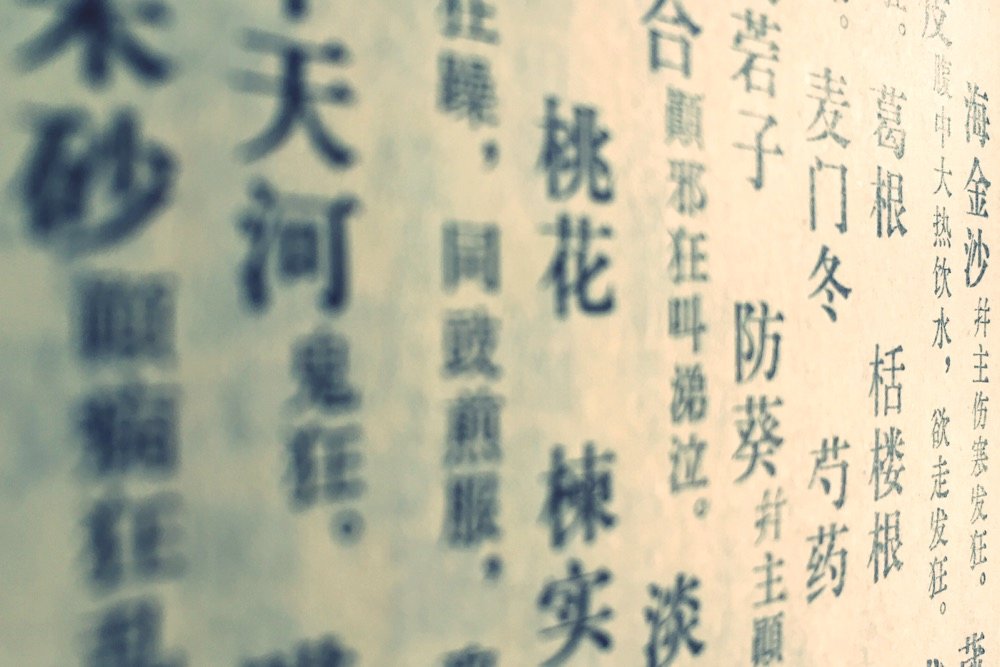 海金沙 并主伤寒发狂。
皮 腹中大热饮水，欲走发狂。
葛根 栝楼根
麦门冬 芍药
菪子 防葵 并主顚
合 顚邪狂叫涕泣。 淡
桃花 楝实
狂躁，同豉煎服，
天河 鬼狂。
朱砂 顚癎狂乱